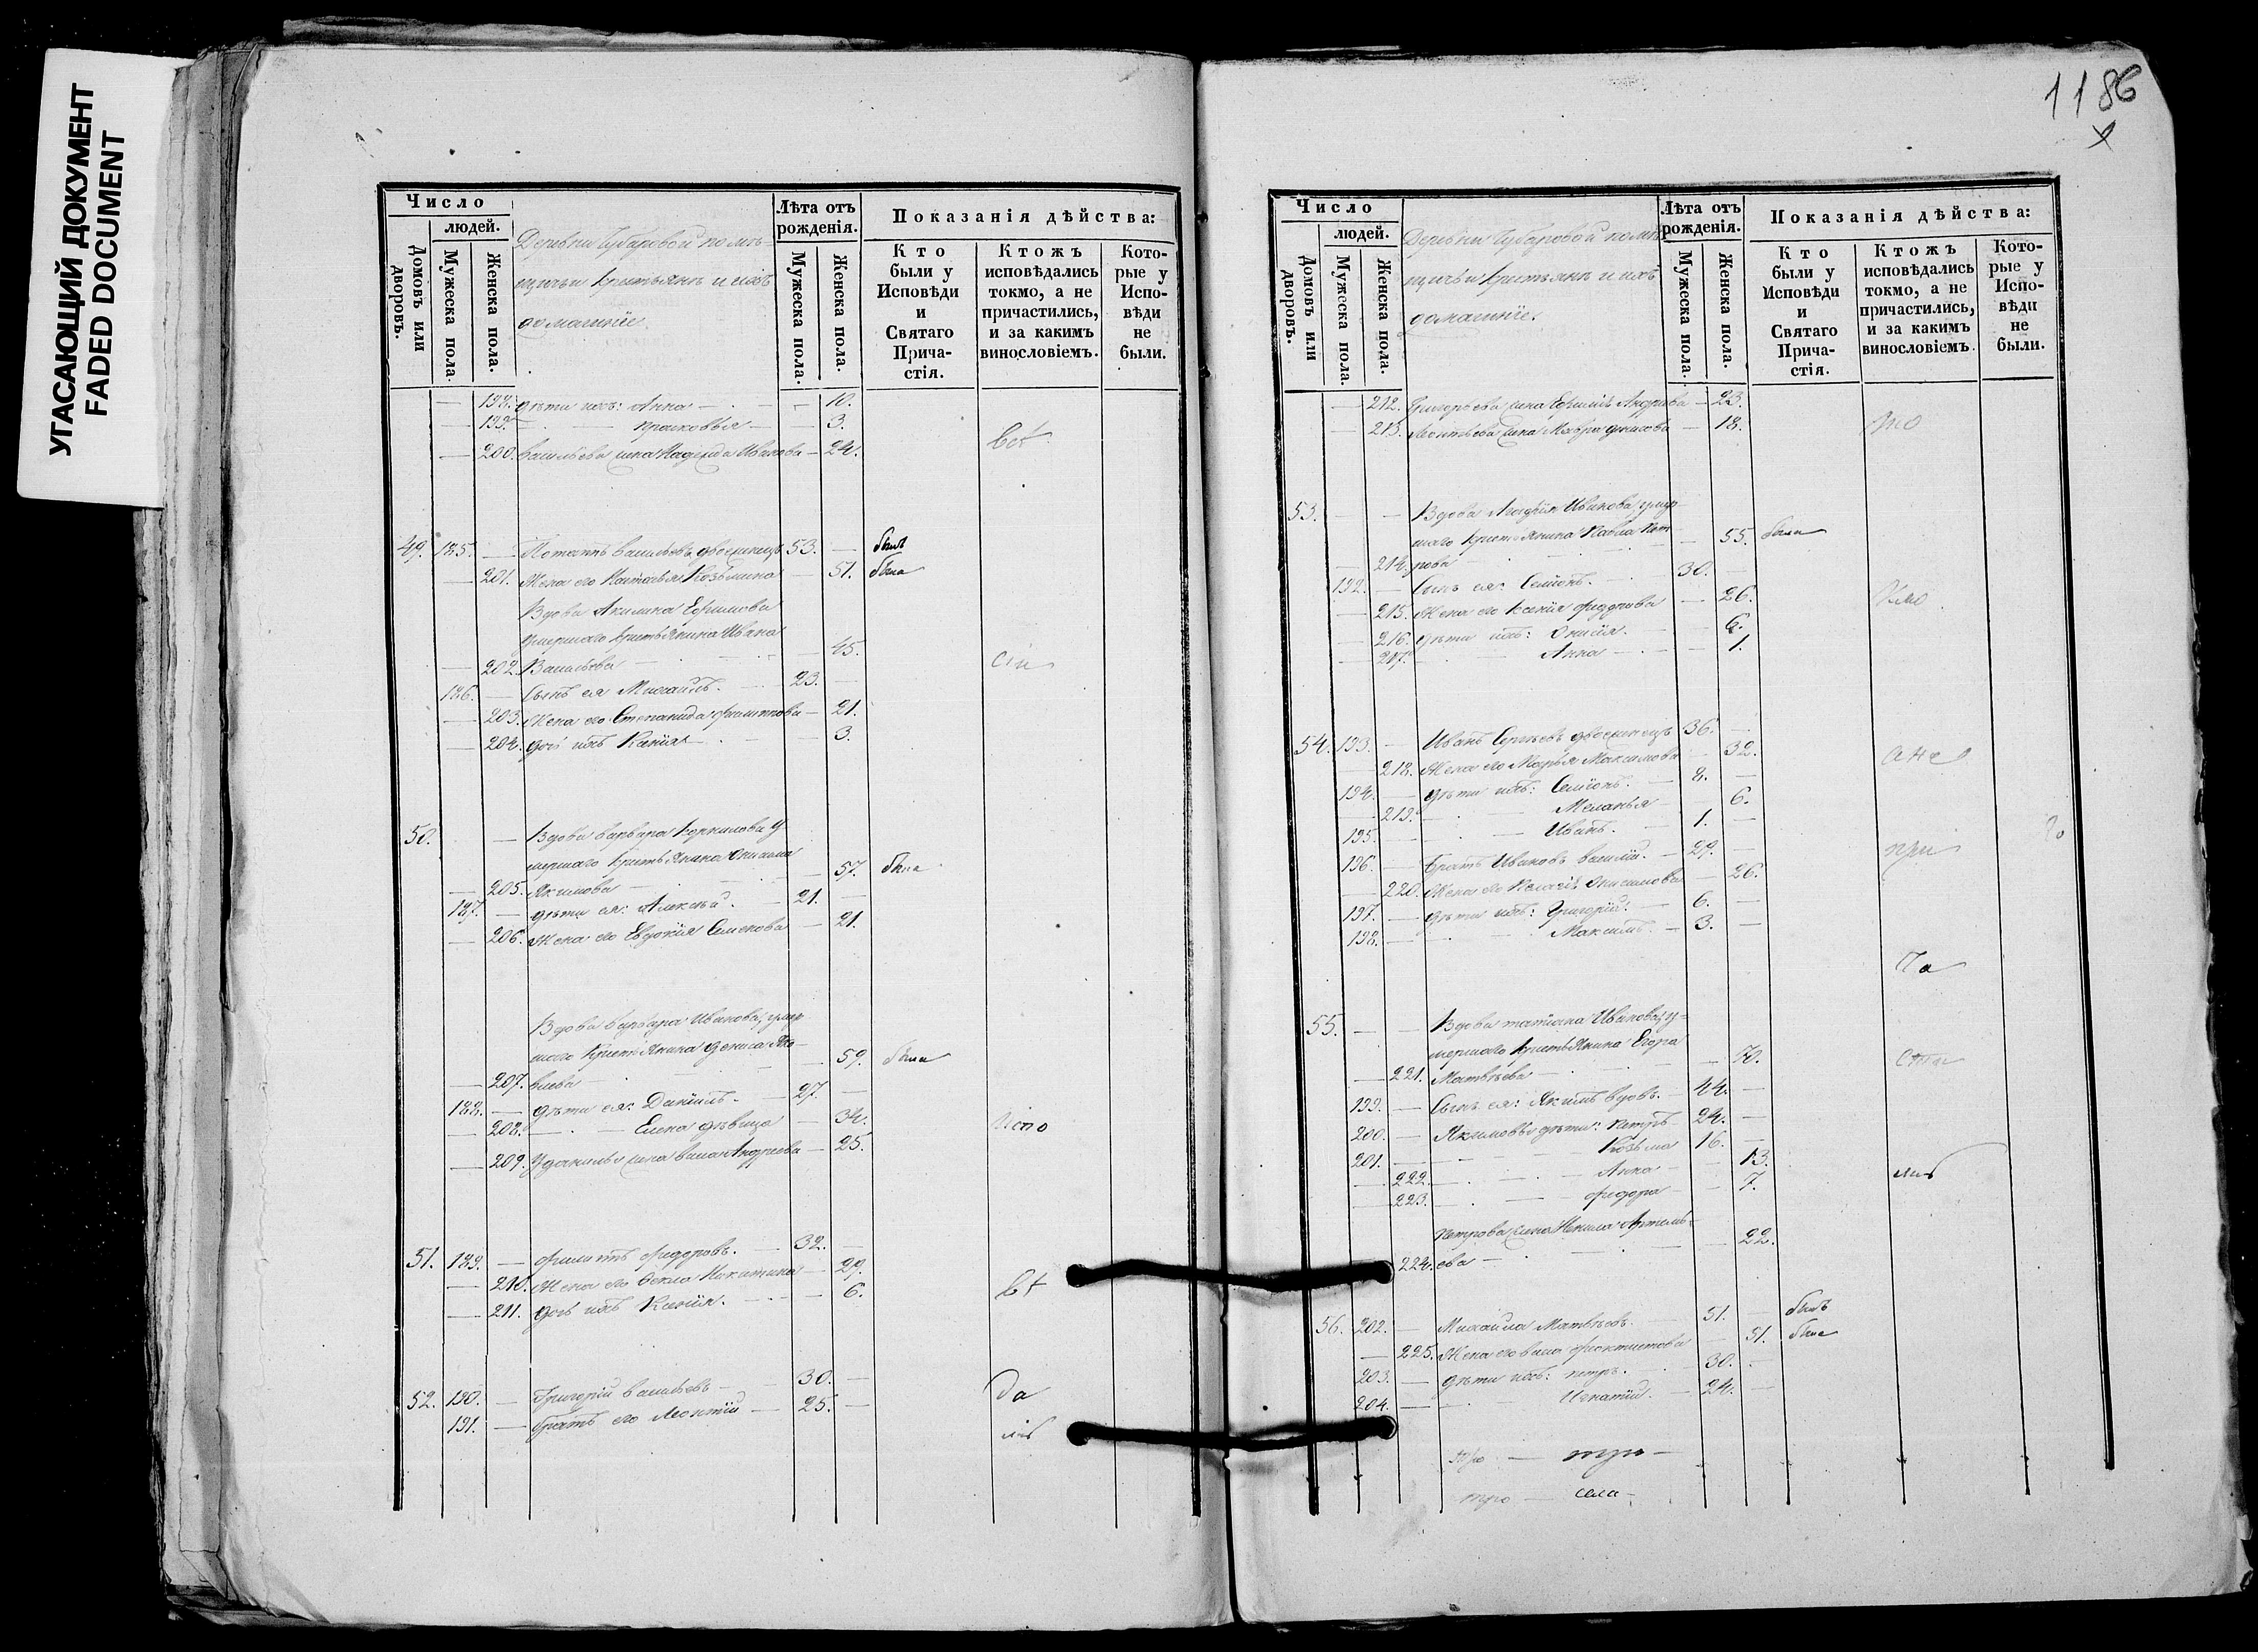 УГАСАЮЩИЙ ДОКУМЕНТ
FADED DOCUMENT
1186
Число
людей.
Домовъ или дворовъ.
Мужеска пола.
Женска пола.
Деревни Губаровой помѣ-
щичьи Крестьяне и ихъ
домашніе.
Лѣта отъ рожденія.
Мужеска пола.
Женска пола.
Показанія дѣйства:
Кто были у Исповѣди и Святаго Прича-стія.
Ктожъ исповѣдались токмо, а не причастились, и за какимъ винословіемъ.
Кото-рые у Испо-вѣди не были.
— 198. дѣти ихъ: Анна — — 10.
— 199. — Прасковья — — 3.
— 200. Васильева жена Надежда Иванова — 24.
Всѣ
49. 185. — Потапъ Васильевъ двоеженецъ 53. — былъ
— 201. Жена его Наталья Козьмина — 51. была
Вдова Акилина Ефимова
умершаго Крестьянина Ивана
— 202. Васильева — — 45.
сіи
186. — Сынъ ея Михаилъ. 23. —
— 203. Жена его Степанида Филиппова — 21.
— 204. дочь ихъ Ксенія — — 3.
50. — Вдова Варвара Корнилова у-
мершаго Крестьянина Онисима
— 205. Якимова — — 57. была
187. — дѣти ея: Алексѣй. — 21. —
— 206. Жена его Евдокія Семенова — 21.
Вдова Варвара Иванова, умер-
шаго Крестьянина Дениса Яко-
— 207. влева — — 59. была
188. — дѣти ея: Даніилъ. — 27. —
— 208. — Елена дѣвица — 34.
испо
— 209. У Данилы жена Анна Андреева — 25.
51. 189. — Филиппъ Федоровъ. — 32. —
— 210. Жена его Фекла Никитина — 29.
— 211. дочь ихъ Ксенія. — — 6.
вѣ
52. 190. — Григорій Васильевъ — 30. —
да
191. — братъ его Леонтій — 25. —
лис
Число
людей.
Домовъ или дворовъ.
Мужеска пола.
Женска пола.
Деревни Губаровой помѣ-
щичьи Крестьяне и ихъ
домашніе.
Лѣта отъ рожденія.
Мужеска пола.
Женска пола.
Показанія дѣйства:
Кто были у Исповѣди и Святаго Прича-стія.
Ктожъ исповѣдались токмо, а не причастились, и за какимъ винословіемъ.
Кото-рые у Испо-вѣди не были.
— 212. Григорьева жена Ефимія Андреева — 23.
— 213. Леонтьева жена Мавра Денисова — 18.
53. — — Вдова Иванова, умер-
шаго Крестьянина Павла Пет-
— 214. рова — 55. была
192. — Сынъ ея: Семіонъ. — 30. —
— 215. Жена его Ксенія Федорова — 26.
— 216. дѣти ихъ: Онисія. — — 6.
— 217. — Анна — — 1.
54. 193. — Иванъ Сергѣевъ двоеженецъ 36. —
— 218. Жена его Марья Максимова — 32.
ане
194. — дѣти ихъ: Семіонъ. — 8. —
— 219. — Меланья — — 6.
195. — Иванъ. — 1. —
196. — братъ Ивановъ Василій. — 29. —
при
— 220. Жена его Пелагія Онисимова — 26.
197. — дѣти ихъ: Григорій. — 6. —
198. — Максимъ. — 3. —
ча
55. — — Вдова Татіана Иванова, у-
мершаго Крестьянина Егора
— 221. Матвѣева — — 70.
сти
199. — Сынъ ея: Якимъ вдовъ. — 44. —
200. — Якимовы дѣти: Петръ 24. —
201. — Козьма 16. —
— 222. — Анна — — 13.
— 223. — Федора — — 7.
лис
Петрова жена Ненила Артемь-
— 224. ева — — 22.
56. 202. — Михаила Матвѣевъ. 51. — былъ
— 225. Жена его Анна Феоктистова — 51. была
203. — дѣти ихъ: Петръ. — 30. —
204. — Игнатій. — 24. —